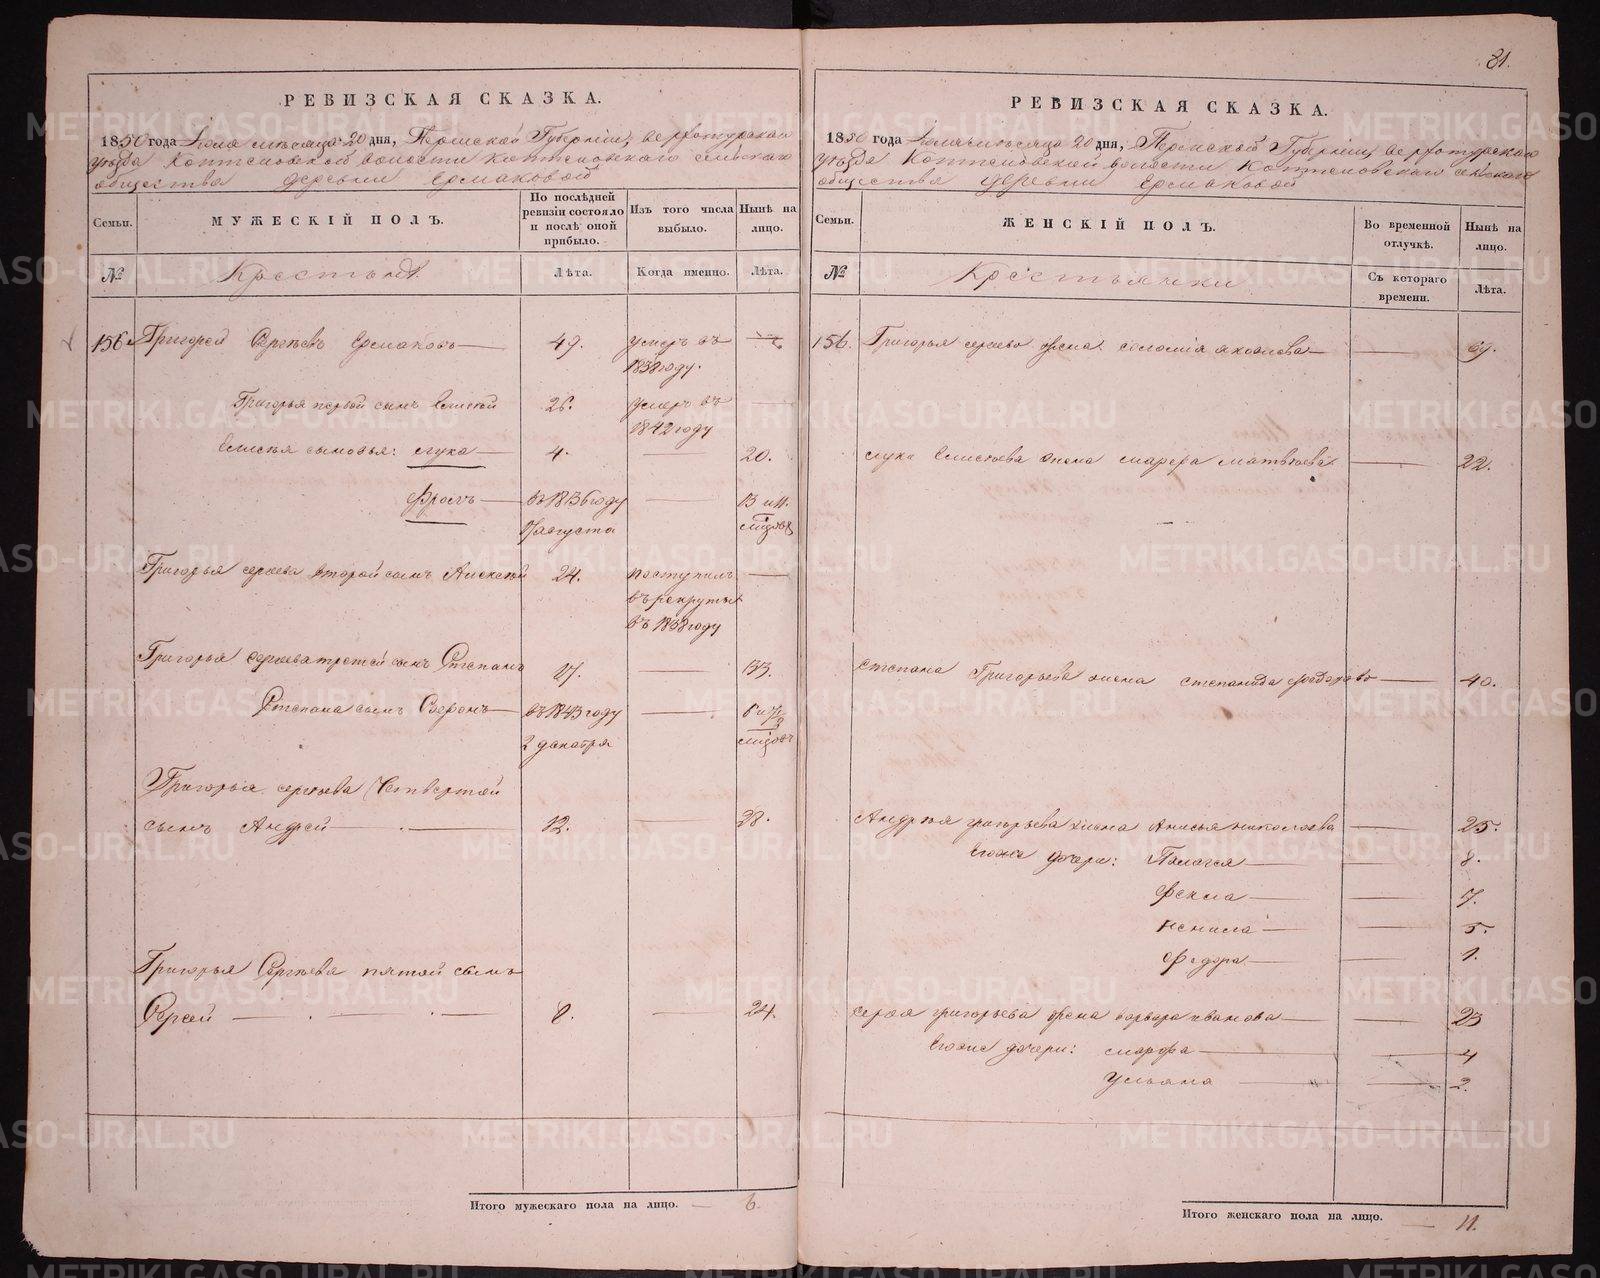 81.
РЕВИЗСКАЯ СКАЗКА.
1850 года Іюля мѣсяца 20 дня, Пермской Губерніи, верхотурскаго
уѣзда Коптеловской волости Коптеловскаго сельскаго
общества деревни Ермаковой
Семьи.
МУЖЕСКІЙ ПОЛЪ.
По послѣдней ревизіи состояло и послѣ оной прибыло.
Изъ того числа выбыло.
Нынѣ на лицо.
№
Крестьяне
Лѣта.
Когда именно.
Лѣта.
156 Григорей Сергѣевъ Ермаковъ — 49. умеръ въ
1838 году.
Григорья первой сынъ Елисей 26. умеръ въ —
1842 году
Елисея сыновья: лука — 4. — 20.
Фролъ — въ 1836 году — 13 и 11.
17 августа мѣсяцов
Григорья сергѣева второй сынъ Алексѣй 24. поступилъ —
въ рекруты
въ 1838 году
Григорья сергѣева третей сынъ Степанъ 17. — 33.
Степана сынъ — въ 1843 году — 6 и 7
2 декабря мѣсяцов
Григорья сергѣева Четвертой
сынъ Андрей — 12. — 28.
Григорья Сергѣева пятой сынъ
Сергей — 8. — 24.
Итого мужескаго пола на лицо. — 6.
РЕВИЗСКАЯ СКАЗКА.
1850 года Іюля мѣсяца 20 дня, Пермской Губерніи, верхотурскаго
уѣзда Коптеловской волости Коптеловскаго сельскаго
общества деревни Ермаковой
Семьи.
ЖЕНСКІЙ ПОЛЪ.
Во временной отлучкѣ.
Нынѣ на лицо.
№
Крестьянки
Съ котораго времени.
Лѣта.
156. Григорья сергѣева жена соломія яковлева — 69.
луки Елисѣева жена марфа матвѣева — 22.
степана Григорьева жена степанида — 40.
Андрея григорьева жена Анисья николаева — 25.
Егоже дочери: Палагея — 8.
Фекла — 7.
ненила — 5.
Федора — 1.
Сергея григорьева жена варвара иванова — 23
Егоже дочери: марфа — 4
Ульяна — 2.
Итого женскаго пола на лицо. — 11.
METRIKI.GASO-URAL.RU